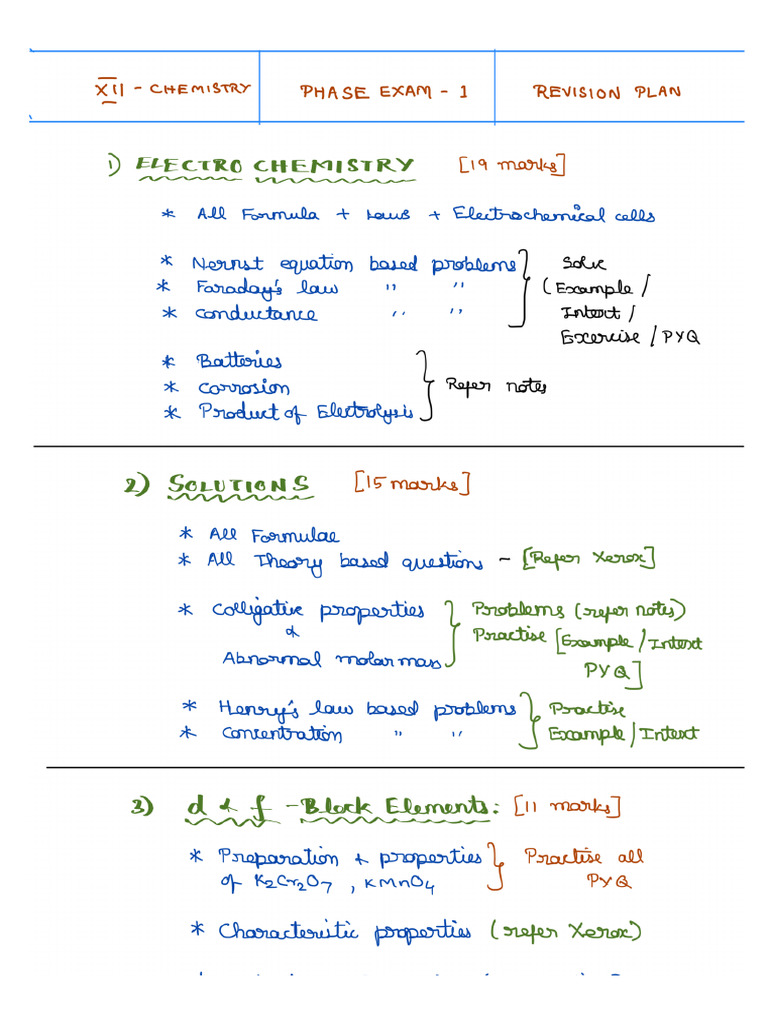 XII - CHEMISTRY PHASE EXAM - 1 REVISION PLAN
1) ELECTRO CHEMISTRY [19 marks]
* All Formula + Laws + Electrochemical cells
* Nernst equation based problems } Solve
* Faraday's law " " (Example /
* Conductance " " Intext /
Excercise / PYQ
* Batteries
* Corrosion } Refer notes
* Product of Electrolysis
2) SOLUTIONS [15 marks]
* All Formulae
* All Theory based questions ~ [Refer Xerox]
* Colligative properties } Problems (refer notes)
& Practise [Example / Intext
Abnormal molar mass PYQ]
* Henry's law based problems } Practise
* Concentration " " Example / Intext
3) d & f - Block Elements: [11 marks]
* Preparation & properties } Practise all
of K2Cr2O7, KMnO4 PYQ
* Characteristic properties (refer Xerox)